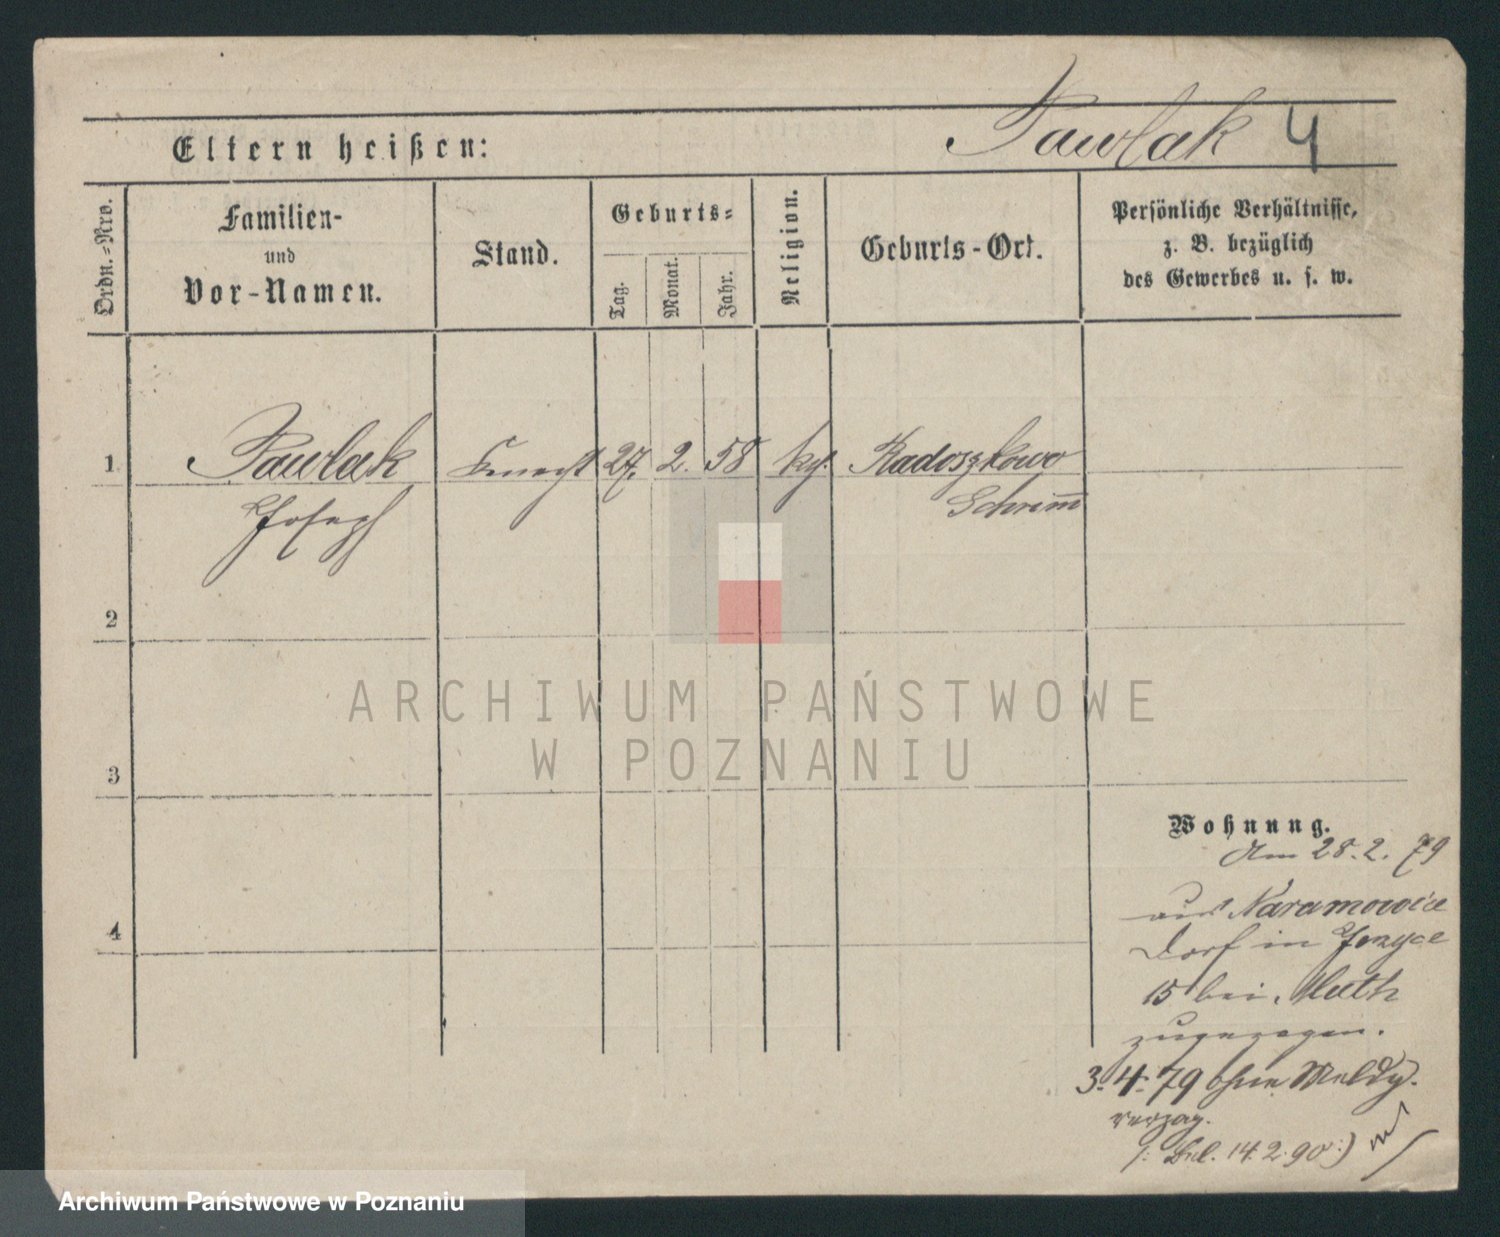 Pawlak 4
Eltern heißen:
Ordn.-Nro.
Familien-
und
Vor-Namen.
Stand.
Geburts-
Tag.
Monat.
Jahr.
Religion.
Geburts-Ort.
Persönliche Verhältnisse,
z. B. bezüglich
des Gewerbes u. s. w.
1 Pawlak Knecht 27. 2. 58 kg. Radoszkowo
Joseph Schrimm
2
3
4
ARCHIWUM PAŃSTWOWE
W POZNANIU
Wohnung.
Am 28. 2. 79
aus Naramowice
Dorf in Jerzyce
15 bei Muth
zugezogen.
3. 4. 79 ohne Meldg.
verzog.
14. 2. 90
Archiwum Państwowe w Poznaniu